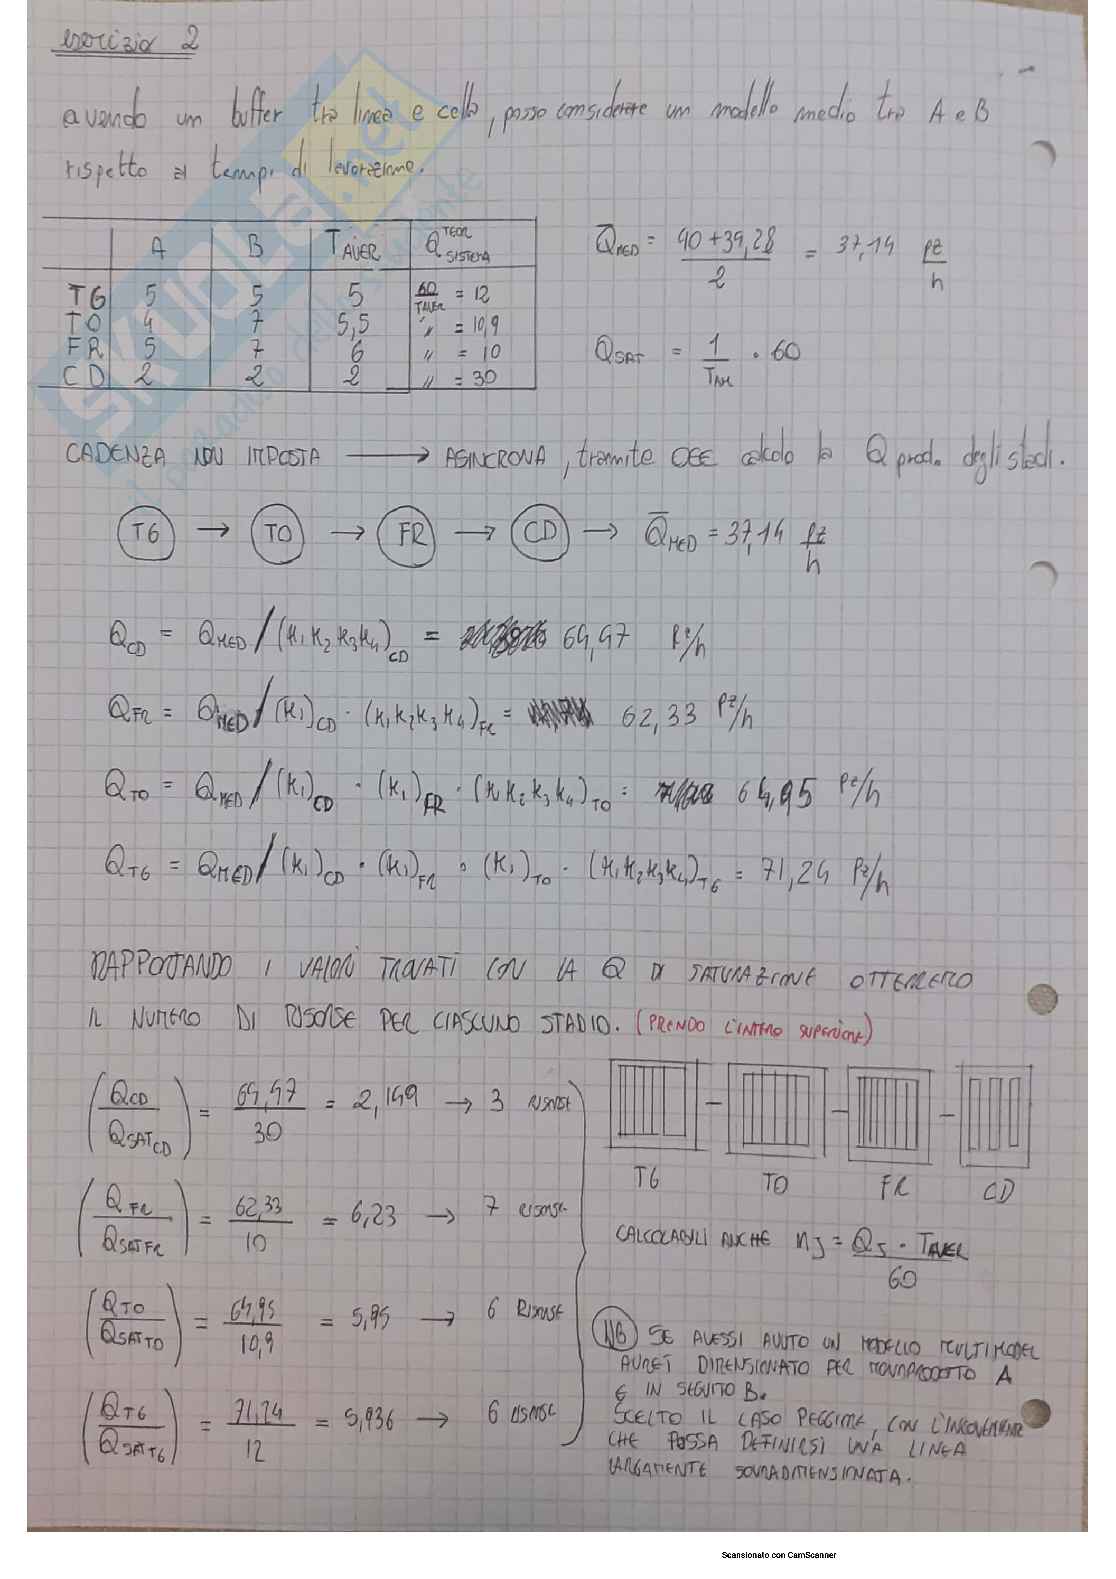 esercizio 2
avendo un buffer tra linea e cella, posso considerare un modello medio tra A e B
rispetto ai tempi di lavorazione.
A B TAVER QTEOR SISTEMA
TG 5 5 5 60/TAVER = 12
TO 4 7 5,5 〃 = 10,9
FR 5 7 6 〃 = 10
CD 2 2 2 〃 = 30
QMED = 40+34,28 / 2 = 37,14 pz/h
QSAT = 1/TAVER · 60
CADENZA NON IMPOSTA → ASINCRONA, tramite OEE calcolo la Q prod. degli stadi.
TG → TO → FR → CD → QMED = 37,14 pz/h
QCD = QMED/(K1 K2 K3 K4)CD = 64,47 Pz/h
QFR = QMED/(K1)CD · (K1 K2 K3 K4)FR = 62,33 Pz/h
QTO = QMED/(K1)CD · (K1)FR · (K K2 K3 K4)TO = 64,95 Pz/h
QTG = QMED/(K1)CD · (K1)FR · (K1)TO · (K1 K2 K3 K4)TG = 71,24 Pz/h
RAPPORTANDO I VALORI TROVATI CON LA Q DI SATURAZIONE OTTERREMO
IL NUMERO DI RISORSE PER CIASCUNO STADIO. (PRENDO L'INTERO SUPERIORE)
(QCD / QSATCD) = 64,47 / 30 = 2,149 → 3 RISORSE
(QFR / QSATFR) = 62,33 / 10 = 6,23 → 7 RISORSE
(QTO / QSATTO) = 64,95 / 10,9 = 5,95 → 6 RISORSE
(QTG / QSATTG) = 71,24 / 12 = 5,936 → 6 RISORSE
TG TO FR CD
CALCOLABILI ANCHE nJ = QJ · TAVER / 60
NB SE AVESSI AVUTO UN MODELLO MULTIMODEL
AVREI DIMENSIONATO PER MONOPRODOTTO A
E IN SEGUITO B.
SCELTO IL CASO PEGGIORE, CON L'INCONVENIENTE
CHE POSSA DEFINIRSI UNA LINEA
LARGAMENTE SOVRADIMENSIONATA.
SKUOLA.net
Scansionato con CamScanner